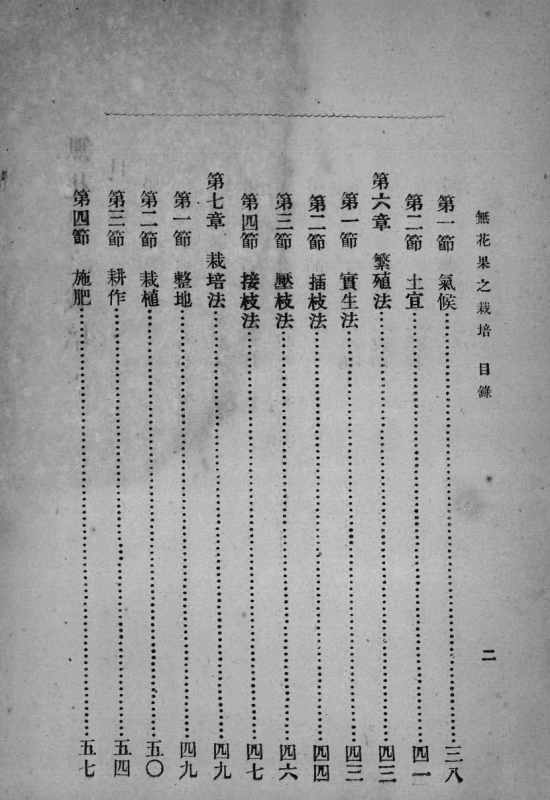 無花果之栽培 目錄 二
第一節 氣候……三八
第二節 土宜……四一
第六章 繁殖法……四三
第一節 實生法……四三
第二節 插枝法……四四
第三節 壓枝法……四六
第四節 接枝法……四七
第七章 栽培法……四九
第一節 整地……四九
第二節 栽植……五〇
第三節 耕作……五四
第四節 施肥……五七